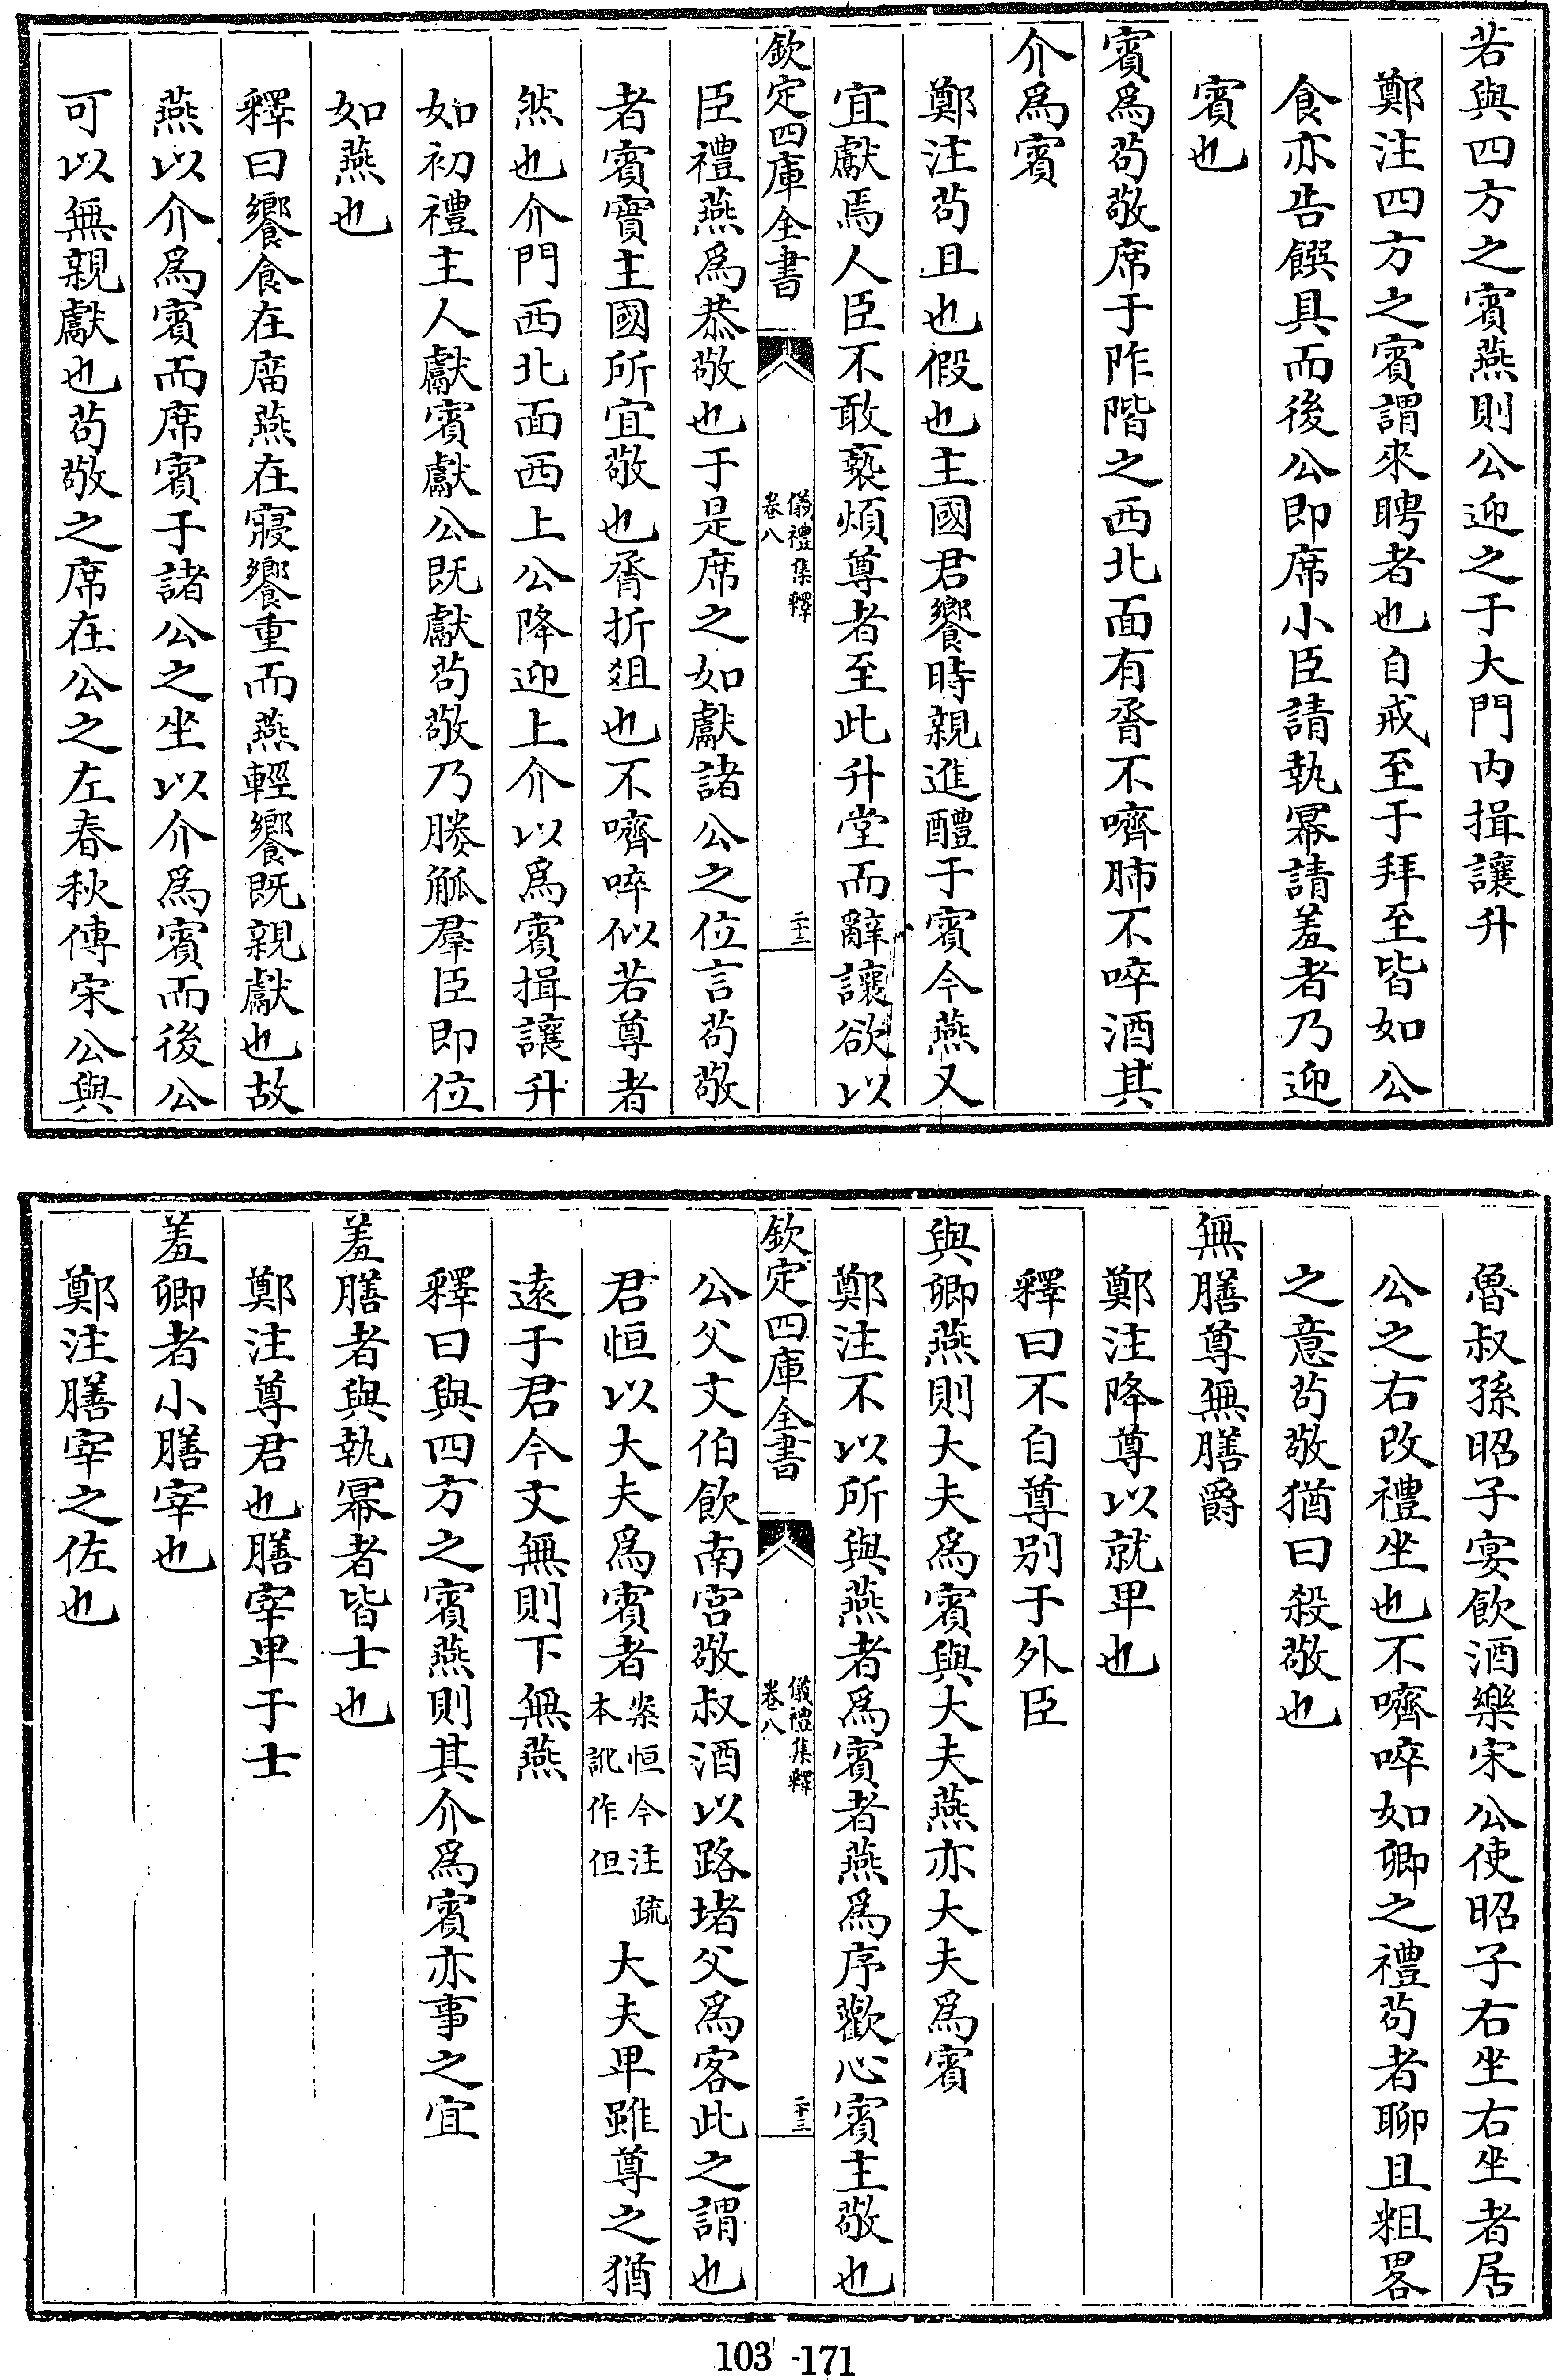 若與四方之賓燕則公迎之于大門内揖讓升
鄭注四方之賓謂來聘者也自戒至于拜至皆如公
食亦告饌具而後公即席小臣請執冪請羞者乃迎
賓也
賓爲茍敬席于阼階之西北面有脀不嚌肺不啐酒其
介爲賓
鄭注茍且也假也主國君饗時親進醴于賓今燕又
宜獻焉人臣不敢䙝煩尊者至此升堂而辭讓欲以
欽定四庫全書
儀禮集釋
卷八
二十二
臣禮燕爲恭敬也于是席之如獻諸公之位言茍敬
者賓實主國所宜敬也脀折俎也不嚌啐似若尊者
然也介門西北面西上公降迎上介以爲賓揖讓升
如初禮主人獻賓獻公既獻茍敬乃媵觚羣臣即位
如燕也
釋曰饗食在廟燕在寢饗重而燕輕饗既親獻也故
燕以介爲賓而席賓于諸公之坐以介爲賓而後公
可以無親獻也茍敬之席在公之左春秋傳宋公與
魯叔孫昭子宴飲酒樂宋公使昭子右坐右坐者居
公之右改禮坐也不嚌啐如卿之禮茍者聊且粗畧
之意茍敬猶曰殺敬也
無膳尊無膳爵
鄭注降尊以就卑也
釋曰不自尊别于外臣
與卿燕則大夫爲賓與大夫燕亦大夫爲賓
鄭注不以所與燕者爲賓者燕爲序歡心賓主敬也
欽定四庫全書
儀禮集釋
卷八
二十三
公父文伯飲南宫敬叔酒以路堵父爲客此之謂也
君恒以大夫爲賓者案恒今注疏本訛作但大夫卑雖尊之猶
遠于君今文無則下無燕
釋曰與四方之賓燕則其介爲賓亦事之宜
羞膳者與執冪者皆士也
鄭注尊君也膳宰卑于士
羞卿者小膳宰也
鄭注膳宰之佐也
103-171